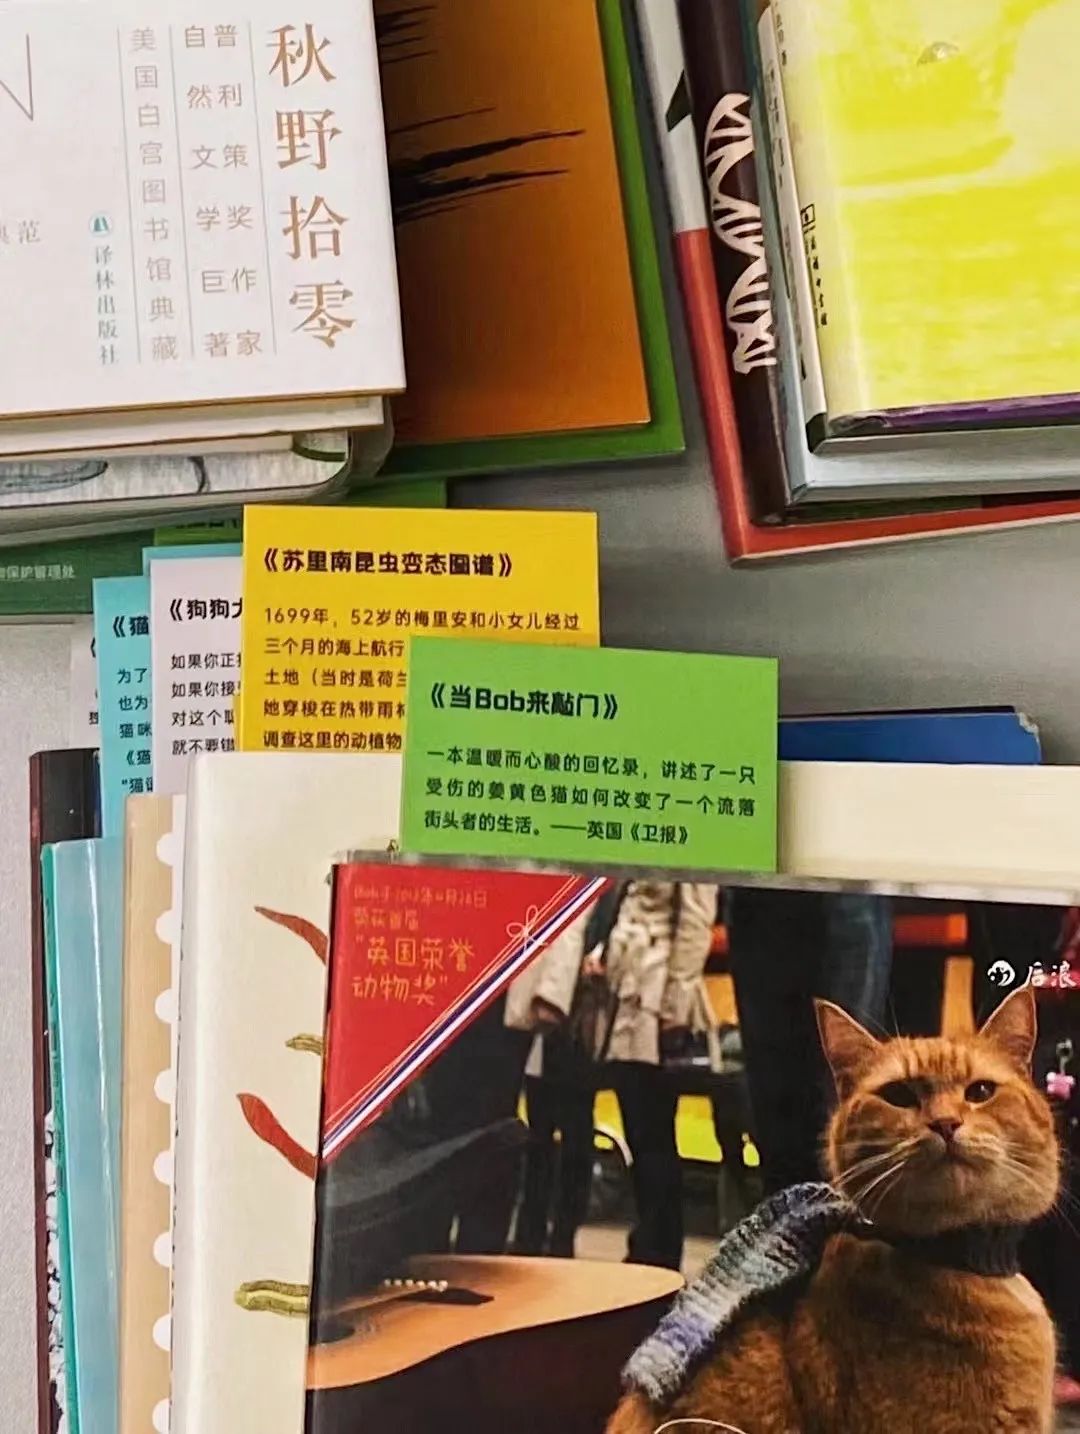 秋野拾零
普利策奖作家
自然文学巨著
美国白宫图书馆典藏
译林出版社
典范
保护管理处
《苏里南昆虫变态图谱》
1699年，52岁的梅里安和小女儿经过
三个月的海上航行
土地（当时是荷兰
她穿梭在热带雨林
调查这里的动植物
《狗狗
如果你正
如果你接
对这个
就不要错
《猫
为了
也为
猫咪
《猫
"猫
《当Bob来敲门》
一本温暖而心酸的回忆录，讲述了一只
受伤的姜黄色猫如何改变了一个流落
街头者的生活。——英国《卫报》
荣获首届
"英国荣誉
动物奖"
后浪